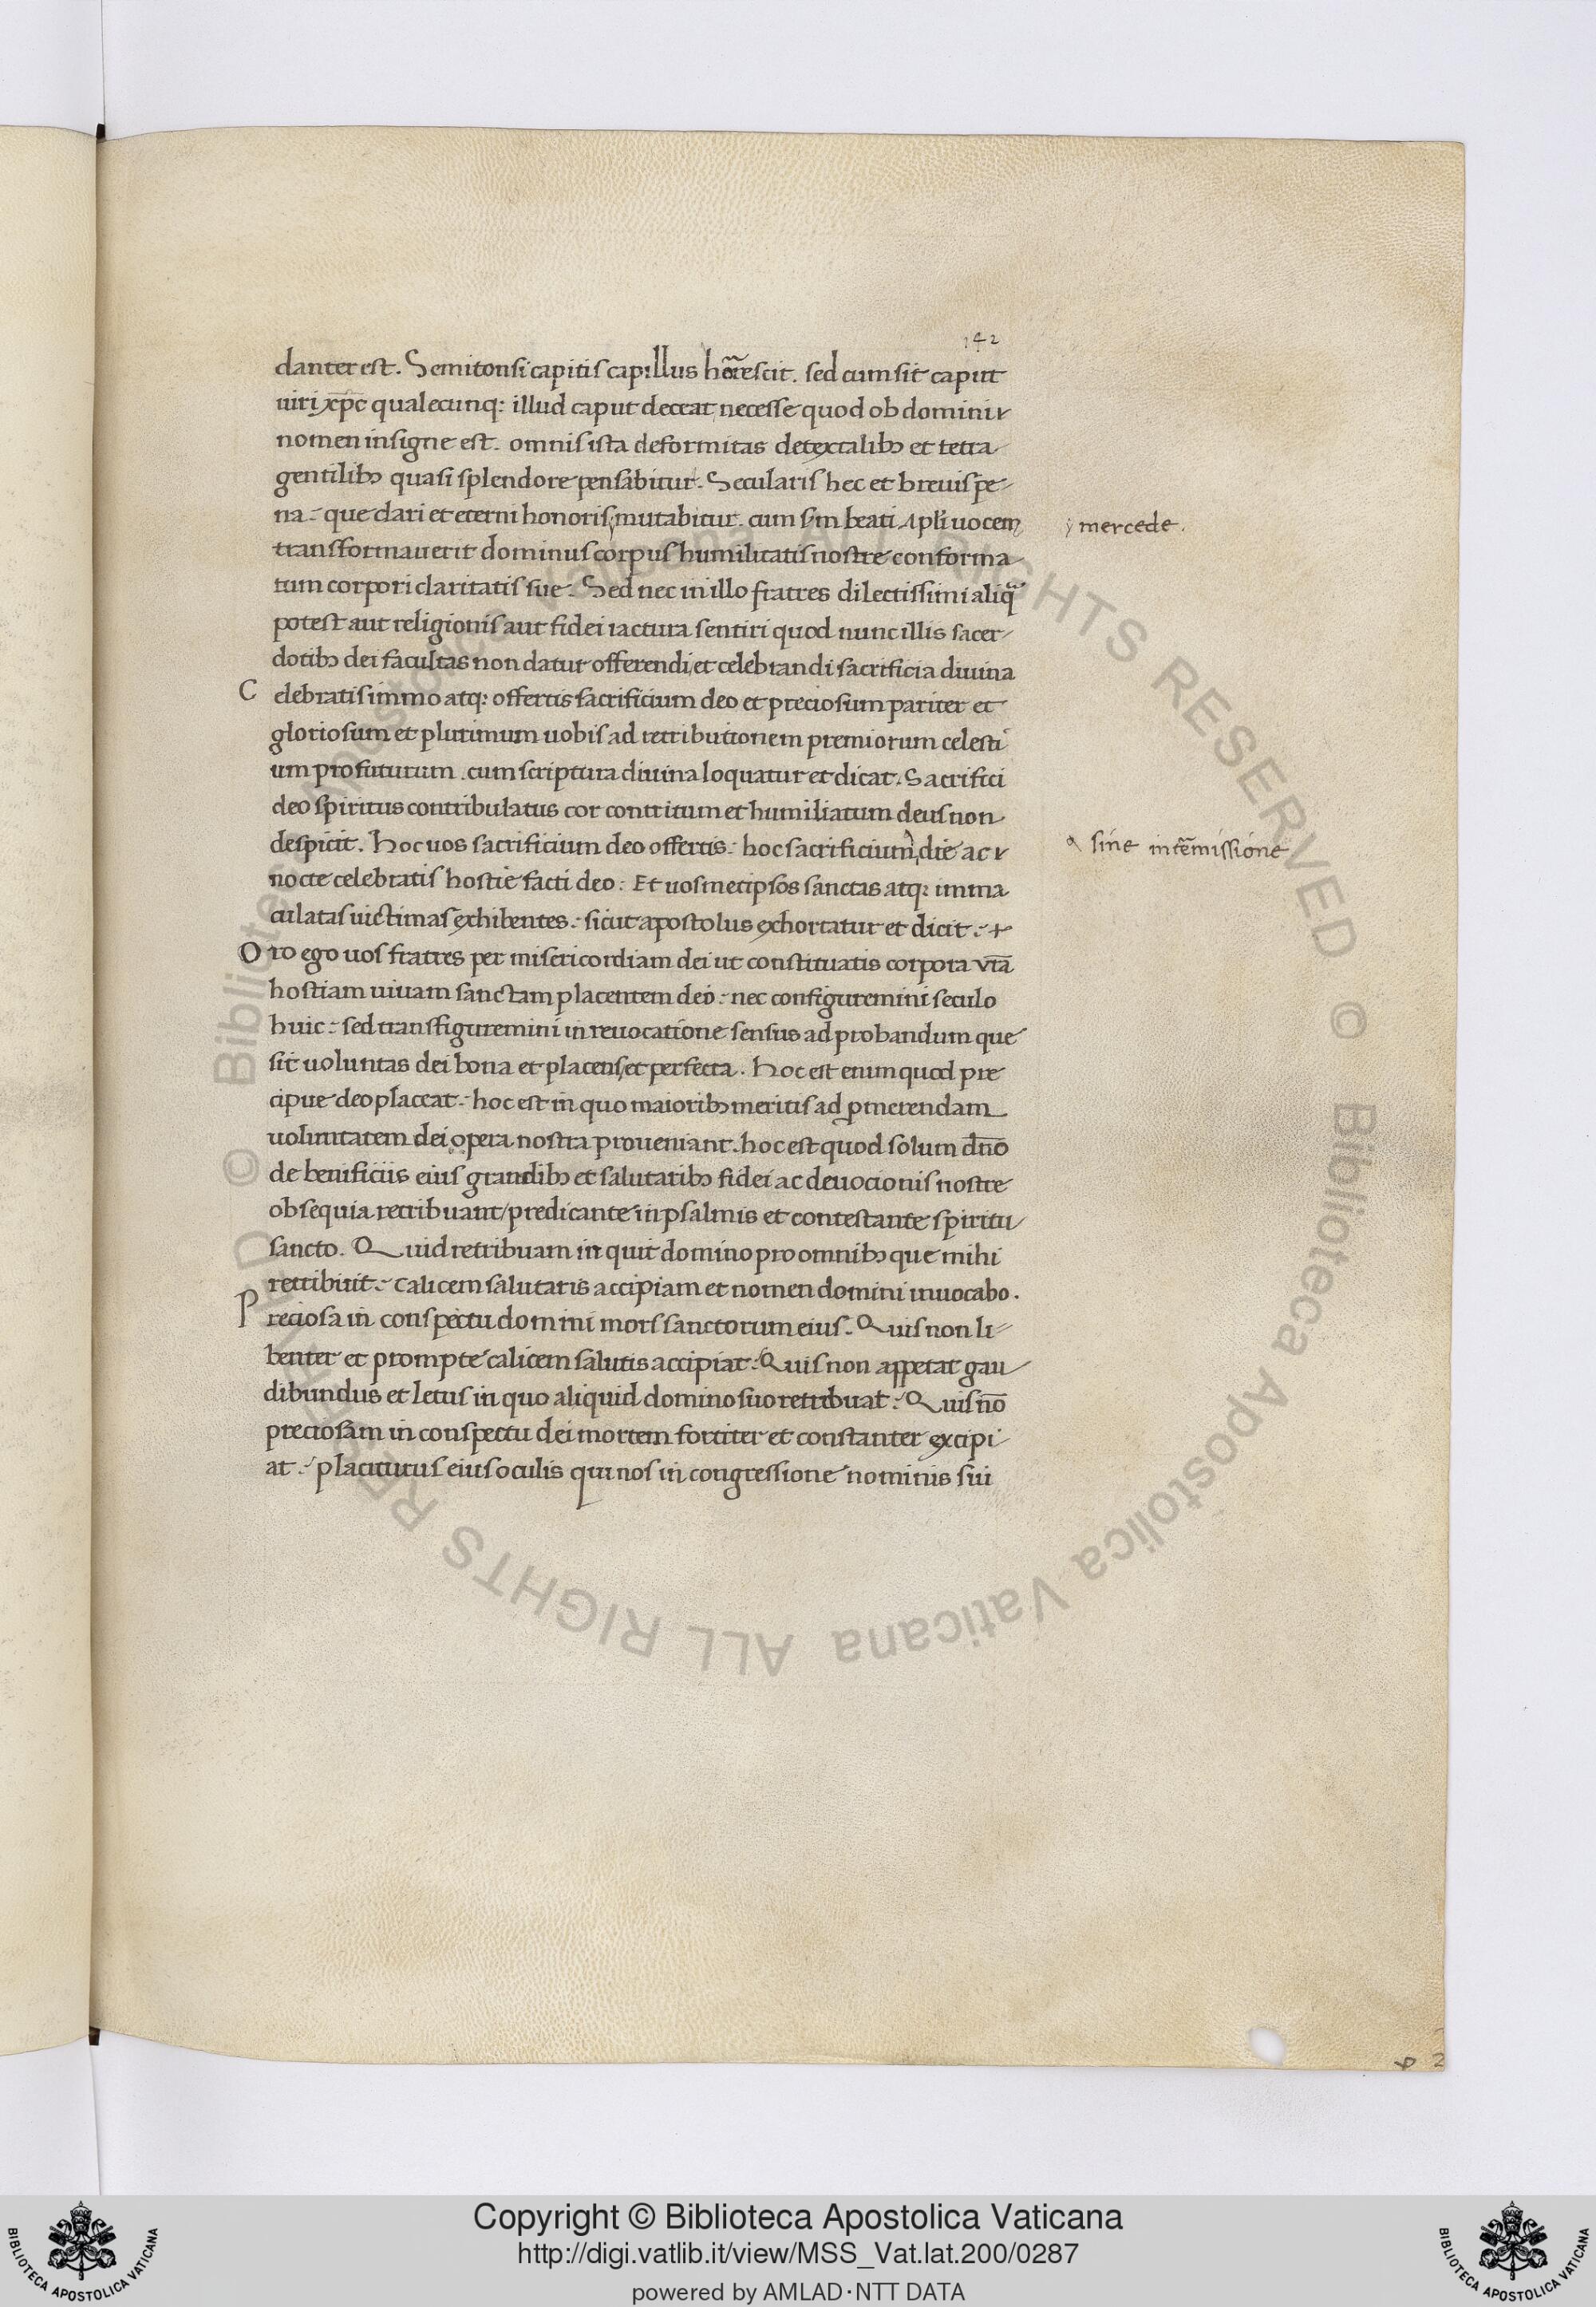 142
danter est. Semitonsi capitis capillus horrescit. sed cum sit caput
uiri xp̄c qualecunq: illud caput deceat necesse quod ob domini
nomen insigne est. omnis ista deformitas detextalibꝫ et tetra
gentilibꝫ quasi splendore pensabitur. Secularis hec et breuis pe-
na: que clari et eterni honoris mutabitur. cum scd̄m beati Apl̄i uocem
mercede.
transformauerit dominus corpus humilitatis nostre conforma-
tum corpori claritatis sue. Sed nec in illo fratres dilectissimi aliq̄
potest aut religionis aut fidei iactura sentiri quod nunc illis sacer-
dotibꝫ dei facultas non datur offerendi et celebrandi sacrificia diuina
Celebratis immo atq: offertis sacrificium deo et preciosum pariter et
gloriosum et plurimum uobis ad retributionem premiorum celesti
um profuturum. cum scriptura diuina loquatur et dicat. Sacrifici
deo spiritus contribulatus cor contritum et humiliatum deus non
despicit. Hoc uos sacrificium deo offertis: hoc sacrificium die ac
sine intermissione
nocte celebratis hostie facti deo: Et uosmetipsos sanctas atq: imma
culatas uictimas exhibentes: sicut apostolus exhortatur et dicit:
Oro ego uos fratres per misericordiam dei ut constituatis corpora vr̄a
hostiam uiuam sanctam placentem deo: nec configuremini seculo
huic: sed transfiguremini in reuocatione sensus ad probandum que
sit uoluntas dei bona et placens et perfecta. Hoc est enim quod pre
cipue deo placeat: hoc est in quo maioribꝫ meritis ad ꝓmerendam
uoluntatem dei opera nostra proueniant. hoc est quod solum dn̄o
de benificiis eius grandibꝫ et salutaribꝫ fidei ac deuocionis nostre
obsequia retribuant/ predicante in psalmis et contestante spiritu
sancto. Quid retribuam inquit domino pro omnibꝫ que mihi
retribuit: calicem salutaris accipiam et nomen domini inuocabo.
Preciosa in conspectu domini mors sanctorum eius. Quis non li-
benter et prompte calicem salutis accipiat: Quis non appetat gau
dibundus et letus in quo aliquid domino suo retribuat: Quis nō
preciosam in conspectu dei mortem fortiter et constanter excipi
at: placiturus eius oculis qui nos in congressione nominis sui
Copyright © Biblioteca Apostolica Vaticana
http://digi.vatlib.it/view/MSS_Vat.lat.200/0287
powered by AMLAD·NTT DATA